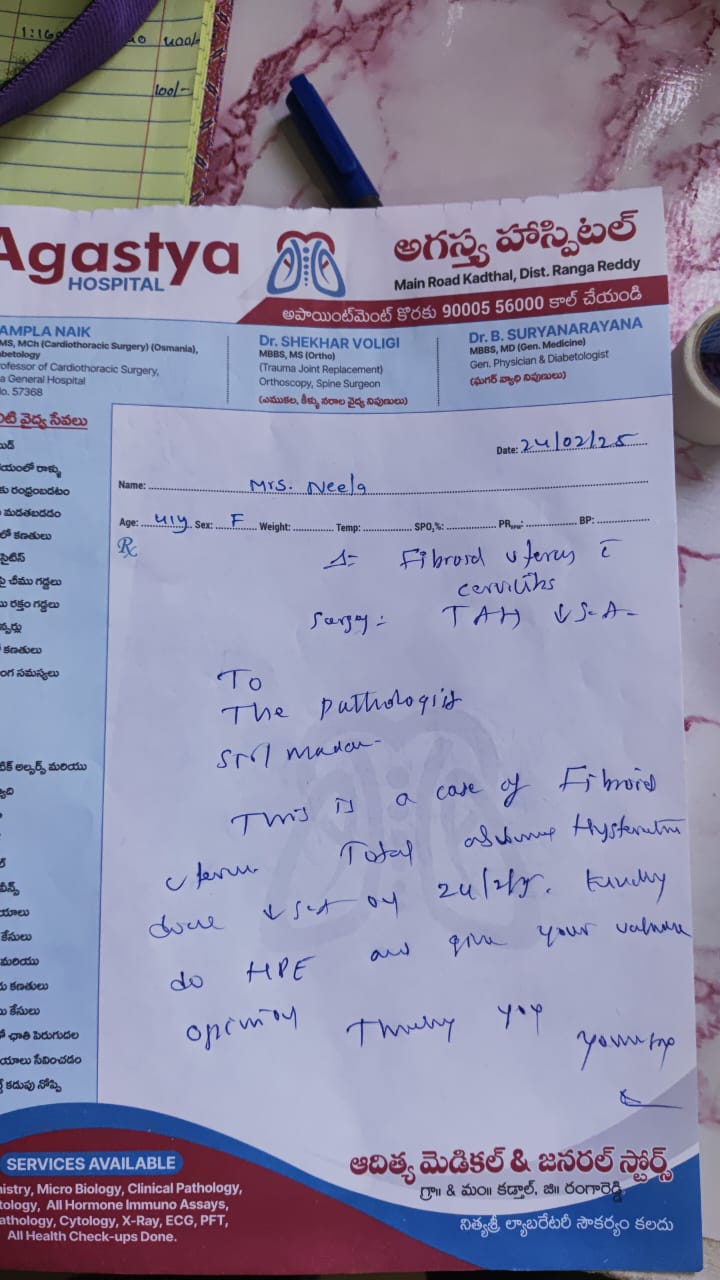 1:160
400/-
100/-
Agastya
HOSPITAL
అగస్త్య హాస్పిటల్
Main Road Kadthal, Dist. Ranga Reddy
అపాయింట్‌మెంట్ కొరకు 90005 56000 కాల్ చేయండి
AMPLA NAIK
MS, MCh (Cardiothoracic Surgery) (Osmania),
betology
rofessor of Cardiothoracic Surgery,
a General Hospital
No. 57368
Dr. SHEKHAR VOLIGI
MBBS, MS (Ortho)
(Trauma Joint Replacement)
Orthoscopy, Spine Surgeon
(ఎముకల, కీళ్ళు నరాల వైద్య నిపుణులు)
Dr. B. SURYANARAYANA
MBBS, MD (Gen. Medicine)
Gen. Physician & Diabetologist
(షుగర్ వ్యాధి నిపుణులు)
టి వైద్య సేవలు
యంలో రాళ్ళు
కు రంధ్రంబడటం
మడతబడడం
లో కణతులు
టిస్
పై చీము గడ్డలు
ు రక్తం గడ్డలు
కణతులు
ంగ సమస్యలు
ిక్ అల్సర్స్ మరియు
కేసులు
మరియు
ు కణతులు
ు కేసులు
ో ఛాతి పెరుగుదల
యాలు సేవించడం
కడుపు నోప్పి
Date: 24/02/25
Name: Mrs. Neela
Age: 41y Sex: F Weight: Temp: SPO2%: PR BP:
Rx
Δ= Fibroid uterus c̄
cervicitis
Surgy:- TAH ↓ S.A-
To
The pathologist
Sir/ Madam
This is a case of Fibroid
uterus Total
done ↓ S.A on 24/2/25. kindly
do HPE and give your valuable
opinion Thank you
ఆదిత్య మెడికల్ & జనరల్ స్టోర్స్
గ్రా॥ & మం॥ కడ్తాల్, జి॥ రంగారెడ్డి.
నిత్యశ్రీ ల్యాబరేటరీ సౌకర్యం కలదు
SERVICES AVAILABLE
istry, Micro Biology, Clinical Pathology,
tology, All Hormone Immuno Assays,
athology, Cytology, X-Ray, ECG, PFT,
All Health Check-ups Done.